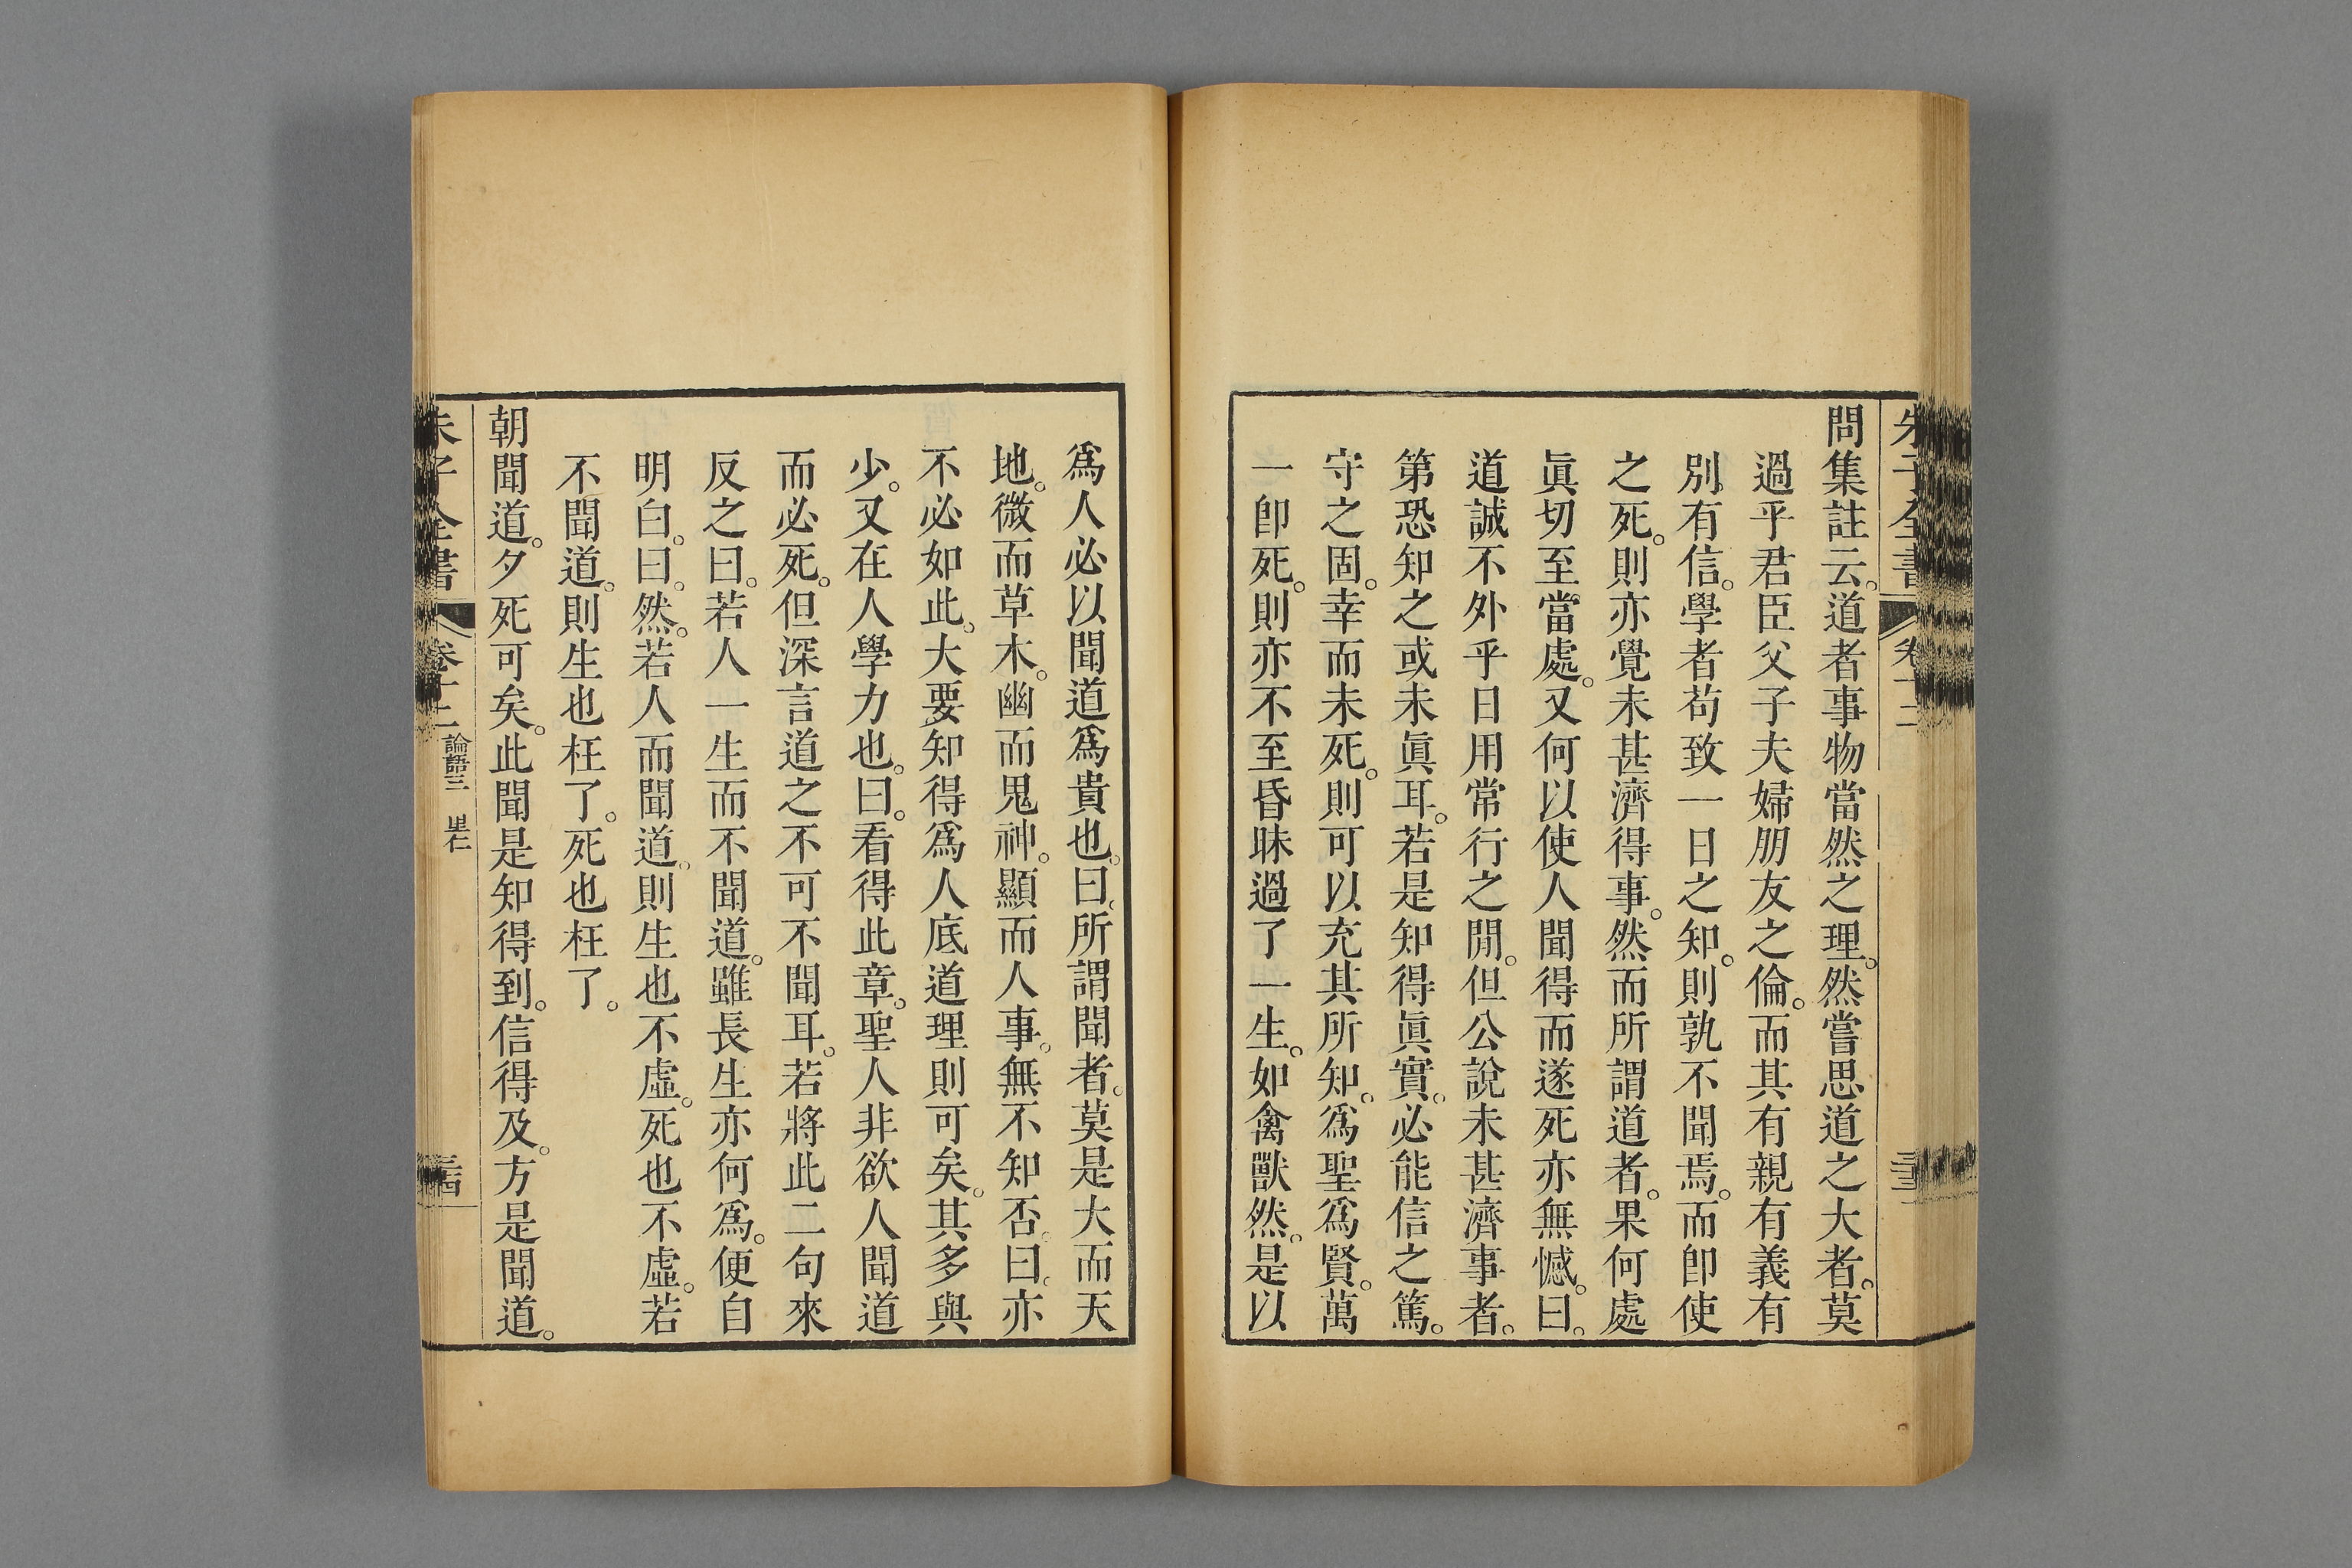 朱子全書 卷十二 三三
問集註云。道者事物當然之理。然嘗思道之大者。莫
過乎君臣父子夫婦朋友之倫。而其有親有義有
別有信。學者苟致一日之知。則孰不聞焉。而卽使
之死。則亦覺未甚濟得事。然而所謂道者。果何處
眞切至當處。又何以使人聞得而遂死亦無憾。曰。
道誠不外乎日用常行之閒。但公說未甚濟事者。
第恐知之或未眞耳。若是知得眞實。必能信之篤。
守之固。幸而未死。則可以充其所知。爲聖爲賢。萬
一卽死。則亦不至昏昧過了一生。如禽獸然。是以
爲人必以聞道爲貴也。曰。所謂聞者。莫是大而天
地。微而草木。幽而鬼神。顯而人事。無不知否。曰。亦
不必如此。大要知得爲人底道理則可矣。其多與
少。又在人學力也。曰。看得此章。聖人非欲人聞道
而必死。但深言道之不可不聞耳。若將此二句來
反之曰。若人一生而不聞道。雖長生亦何爲。便自
明白。曰。然。若人而聞道。則生也不虛。死也不虛。若
不聞道。則生也枉了。死也枉了。
朝聞道。夕死可矣。此聞是知得到。信得及。方是聞道。
朱子全書 卷十二 論語三 里仁 三四